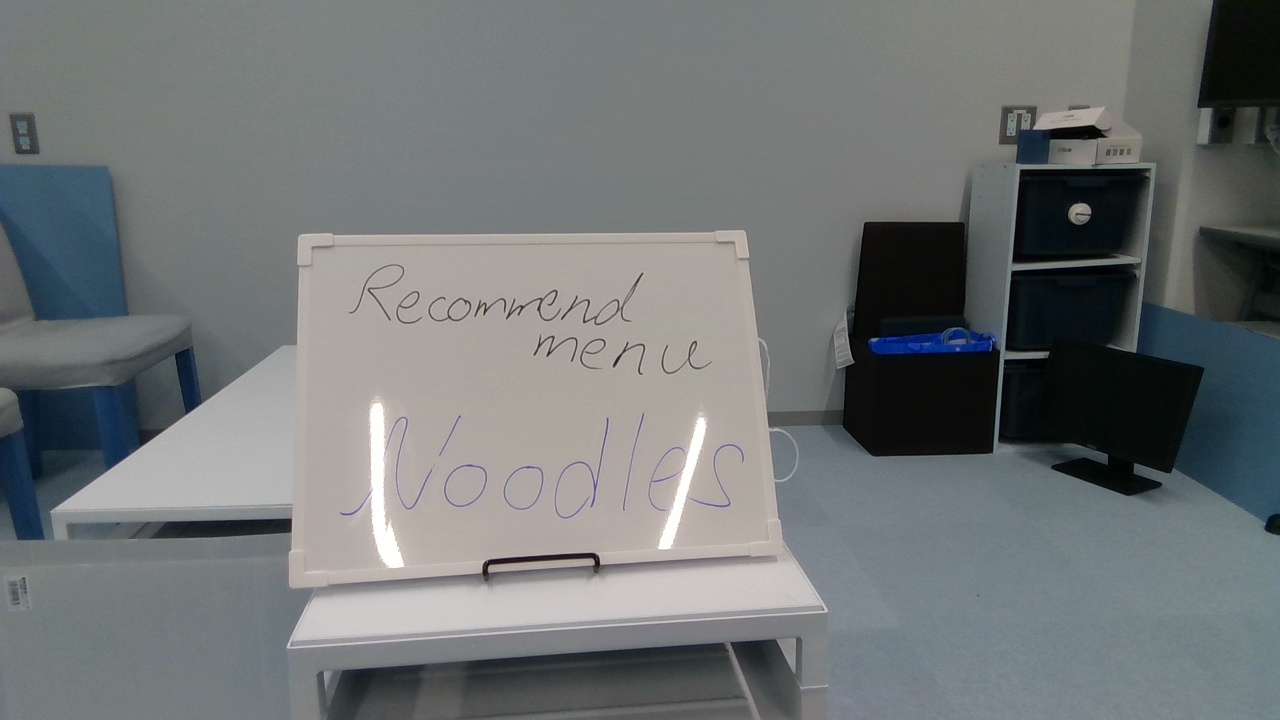 Recommend
menu
Noodles